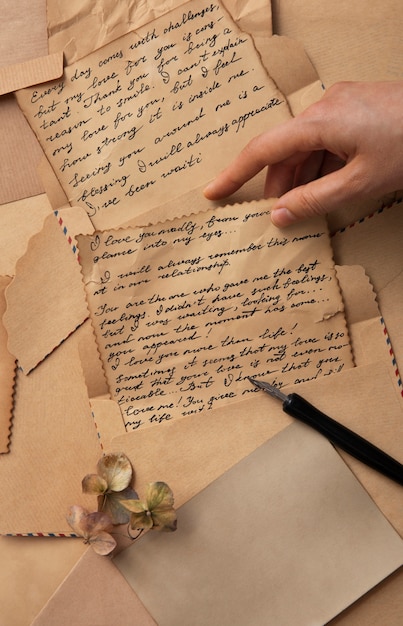 Every day comes with challenges,
but my love for you is cons-
tant. Thank you for being a
reason to smile. I can't explain
my love for you, but I feel
how strong it is inside me.
Seeing you around me is a
blessing I will always appreciate
I've been waiti
I love you madly, from your
glance into my eyes...
I will always remember this mome
nt in our relationship.
You are the one who gave me the best
feelings. I didn't have such feelings,
but I was waiting, looking for...
and now the moment has come...
you appeared!
I love you more than life!
Sometimes it seems that my love is so
great that your love is not even no-
ticeable. But I know that you
love me! You give me joy and
my life